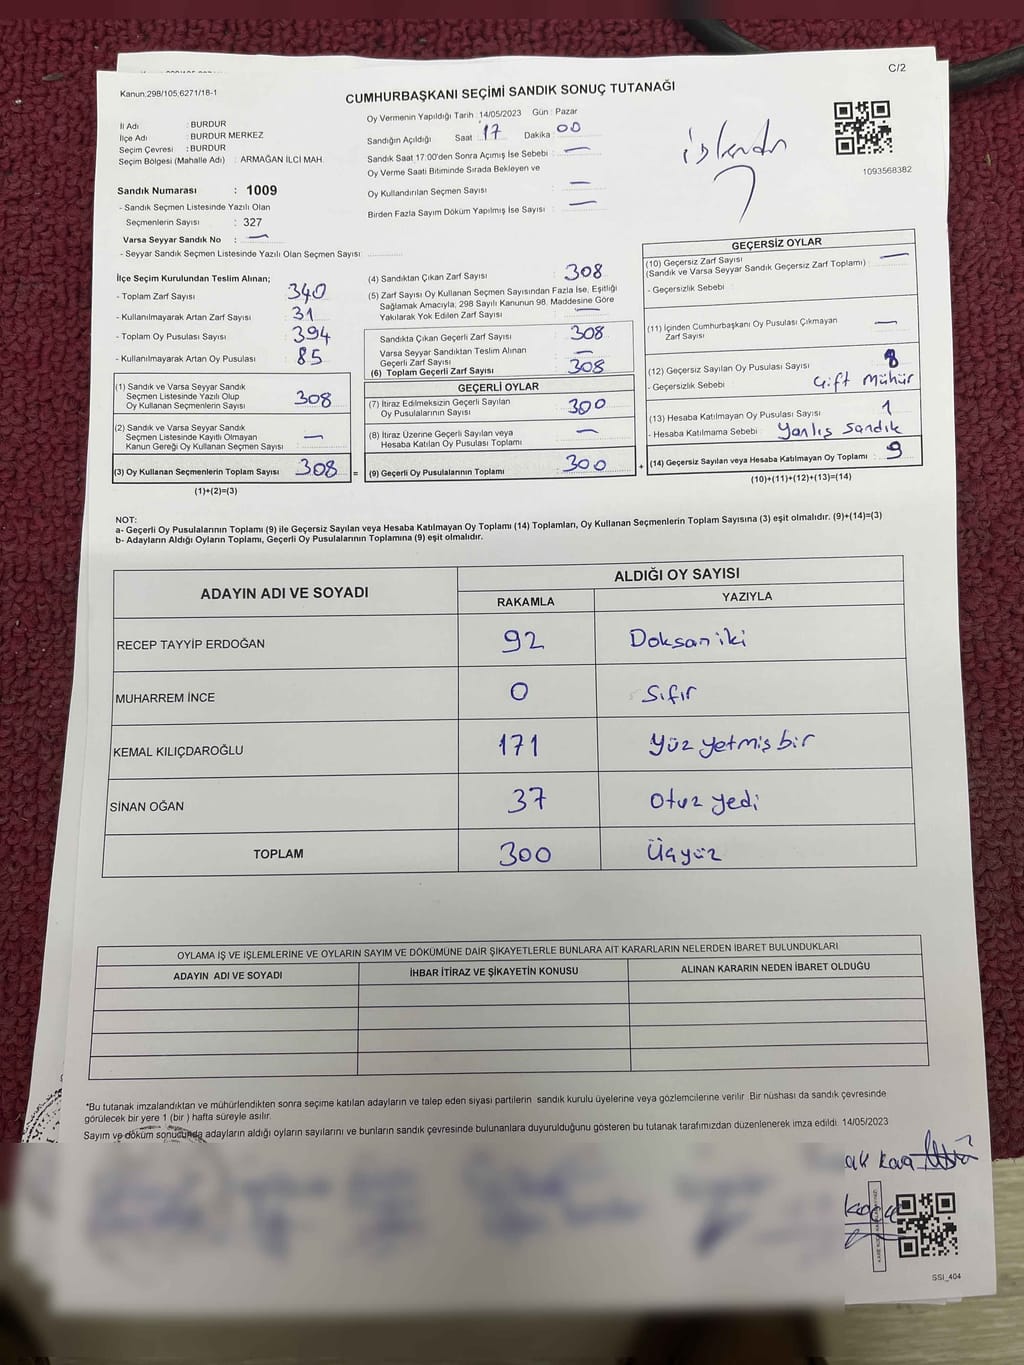 C/2
Kanun:298/105,6271/18-1
CUMHURBAŞKANI SEÇİMİ SANDIK SONUÇ TUTANAĞI
İl Adı : BURDUR
İlçe Adı : BURDUR MERKEZ
Seçim Çevresi : BURDUR
Seçim Bölgesi (Mahalle Adı) : ARMAĞAN İLCİ MAH.
Sandık Numarası : 1009
- Sandık Seçmen Listesinde Yazılı Olan
Seçmenlerin Sayısı : 327
Varsa Seyyar Sandık No : —
- Seyyar Sandık Seçmen Listesinde Yazılı Olan Seçmen Sayısı
Oy Vermenin Yapıldığı Tarih 14/05/2023 Gün : Pazar
Sandığın Açıldığı Saat 17 Dakika 00
Sandık Saat 17:00'den Sonra Açımış İse Sebebi : —
Oy Verme Saati Bitiminde Sırada Bekleyen ve
Oy Kullandırılan Seçmen Sayısı : —
Birden Fazla Sayım Döküm Yapılmış İse Sayısı : —
işlendi
1093568382
İlçe Seçim Kurulundan Teslim Alınan;
- Toplam Zarf Sayısı : 340
- Kullanılmayarak Artan Zarf Sayısı : 31
- Toplam Oy Pusulası Sayısı : 394
- Kullanılmayarak Artan Oy Pusulası : 85
(1) Sandık ve Varsa Seyyar Sandık
Seçmen Listesinde Yazılı Olup
Oy Kullanan Seçmenlerin Sayısı : 308
(2) Sandık ve Varsa Seyyar Sandık
Seçmen Listesinde Kayıtlı Olmayan
Kanun Gereği Oy Kullanan Seçmen Sayısı : —
(3) Oy Kullanan Seçmenlerin Toplam Sayısı : 308
(1)+(2)=(3)
(4) Sandıktan Çıkan Zarf Sayısı : 308
(5) Zarf Sayısı Oy Kullanan Seçmen Sayısından Fazla İse, Eşitliği
Sağlamak Amacıyla, 298 Sayılı Kanunun 98. Maddesine Göre
Yakılarak Yok Edilen Zarf Sayısı : —
Sandıkta Çıkan Geçerli Zarf Sayısı : 308
Varsa Seyyar Sandıktan Teslim Alınan
Geçerli Zarf Sayısı : —
(6) Toplam Geçerli Zarf Sayısı : 308
GEÇERLİ OYLAR
(7) İtiraz Edilmeksizin Geçerli Sayılan
Oy Pusulalarının Sayısı : 300
(8) İtiraz Üzerine Geçerli Sayılan veya
Hesaba Katılan Oy Pusulası Toplamı : —
= (9) Geçerli Oy Pusulalarının Toplamı : 300
GEÇERSİZ OYLAR
(10) Geçersiz Zarf Sayısı : —
(Sandık ve Varsa Seyyar Sandık Geçersiz Zarf Toplamı)
- Geçersizlik Sebebi :
(11) İçinden Cumhurbaşkanı Oy Pusulası Çıkmayan
Zarf Sayısı : —
(12) Geçersiz Sayılan Oy Pusulası Sayısı : 8
- Geçersizlik Sebebi : Çift Mühür
(13) Hesaba Katılmayan Oy Pusulası Sayısı : 1
- Hesaba Katılmama Sebebi : Yanlış Sandık
+ (14) Geçersiz Sayılan veya Hesaba Katılmayan Oy Toplamı : 9
(10)+(11)+(12)+(13)=(14)
NOT:
a- Geçerli Oy Pusulalarının Toplamı (9) ile Geçersiz Sayılan veya Hesaba Katılmayan Oy Toplamı (14) Toplamları, Oy Kullanan Seçmenlerin Toplam Sayısına (3) eşit olmalıdır. (9)+(14)=(3)
b- Adayların Aldığı Oyların Toplamı, Geçerli Oy Pusulalarının Toplamına (9) eşit olmalıdır.
ADAYIN ADI VE SOYADI ALDIĞI OY SAYISI
RAKAMLA YAZIYLA
RECEP TAYYİP ERDOĞAN 92 Doksan iki
MUHARREM İNCE 0 Sıfır
KEMAL KILIÇDAROĞLU 171 Yüz yetmiş bir
SİNAN OĞAN 37 Otuz yedi
TOPLAM 300 Üçyüz
OYLAMA İŞ VE İŞLEMLERİNE VE OYLARIN SAYIM VE DÖKÜMÜNE DAİR ŞİKAYETLERLE BUNLARA AİT KARARLARIN NELERDEN İBARET BULUNDUKLARI
ADAYIN ADI VE SOYADI İHBAR İTİRAZ VE ŞİKAYETİN KONUSU ALINAN KARARIN NEDEN İBARET OLDUĞU
*Bu tutanak imzalandıktan ve mühürlendikten sonra seçime katılan adayların ve talep eden siyasi partilerin sandık kurulu üyelerine veya gözlemcilerine verilir. Bir nüshası da sandık çevresinde
görülecek bir yere 1 (bir ) hafta süreyle asılır.
Sayım ve döküm sonucunda adayların aldığı oyların sayılarını ve bunların sandık çevresinde bulunanlara duyurulduğunu gösteren bu tutanak tarafımızdan düzenlenerek imza edildi. 14/05/2023
SSI_404